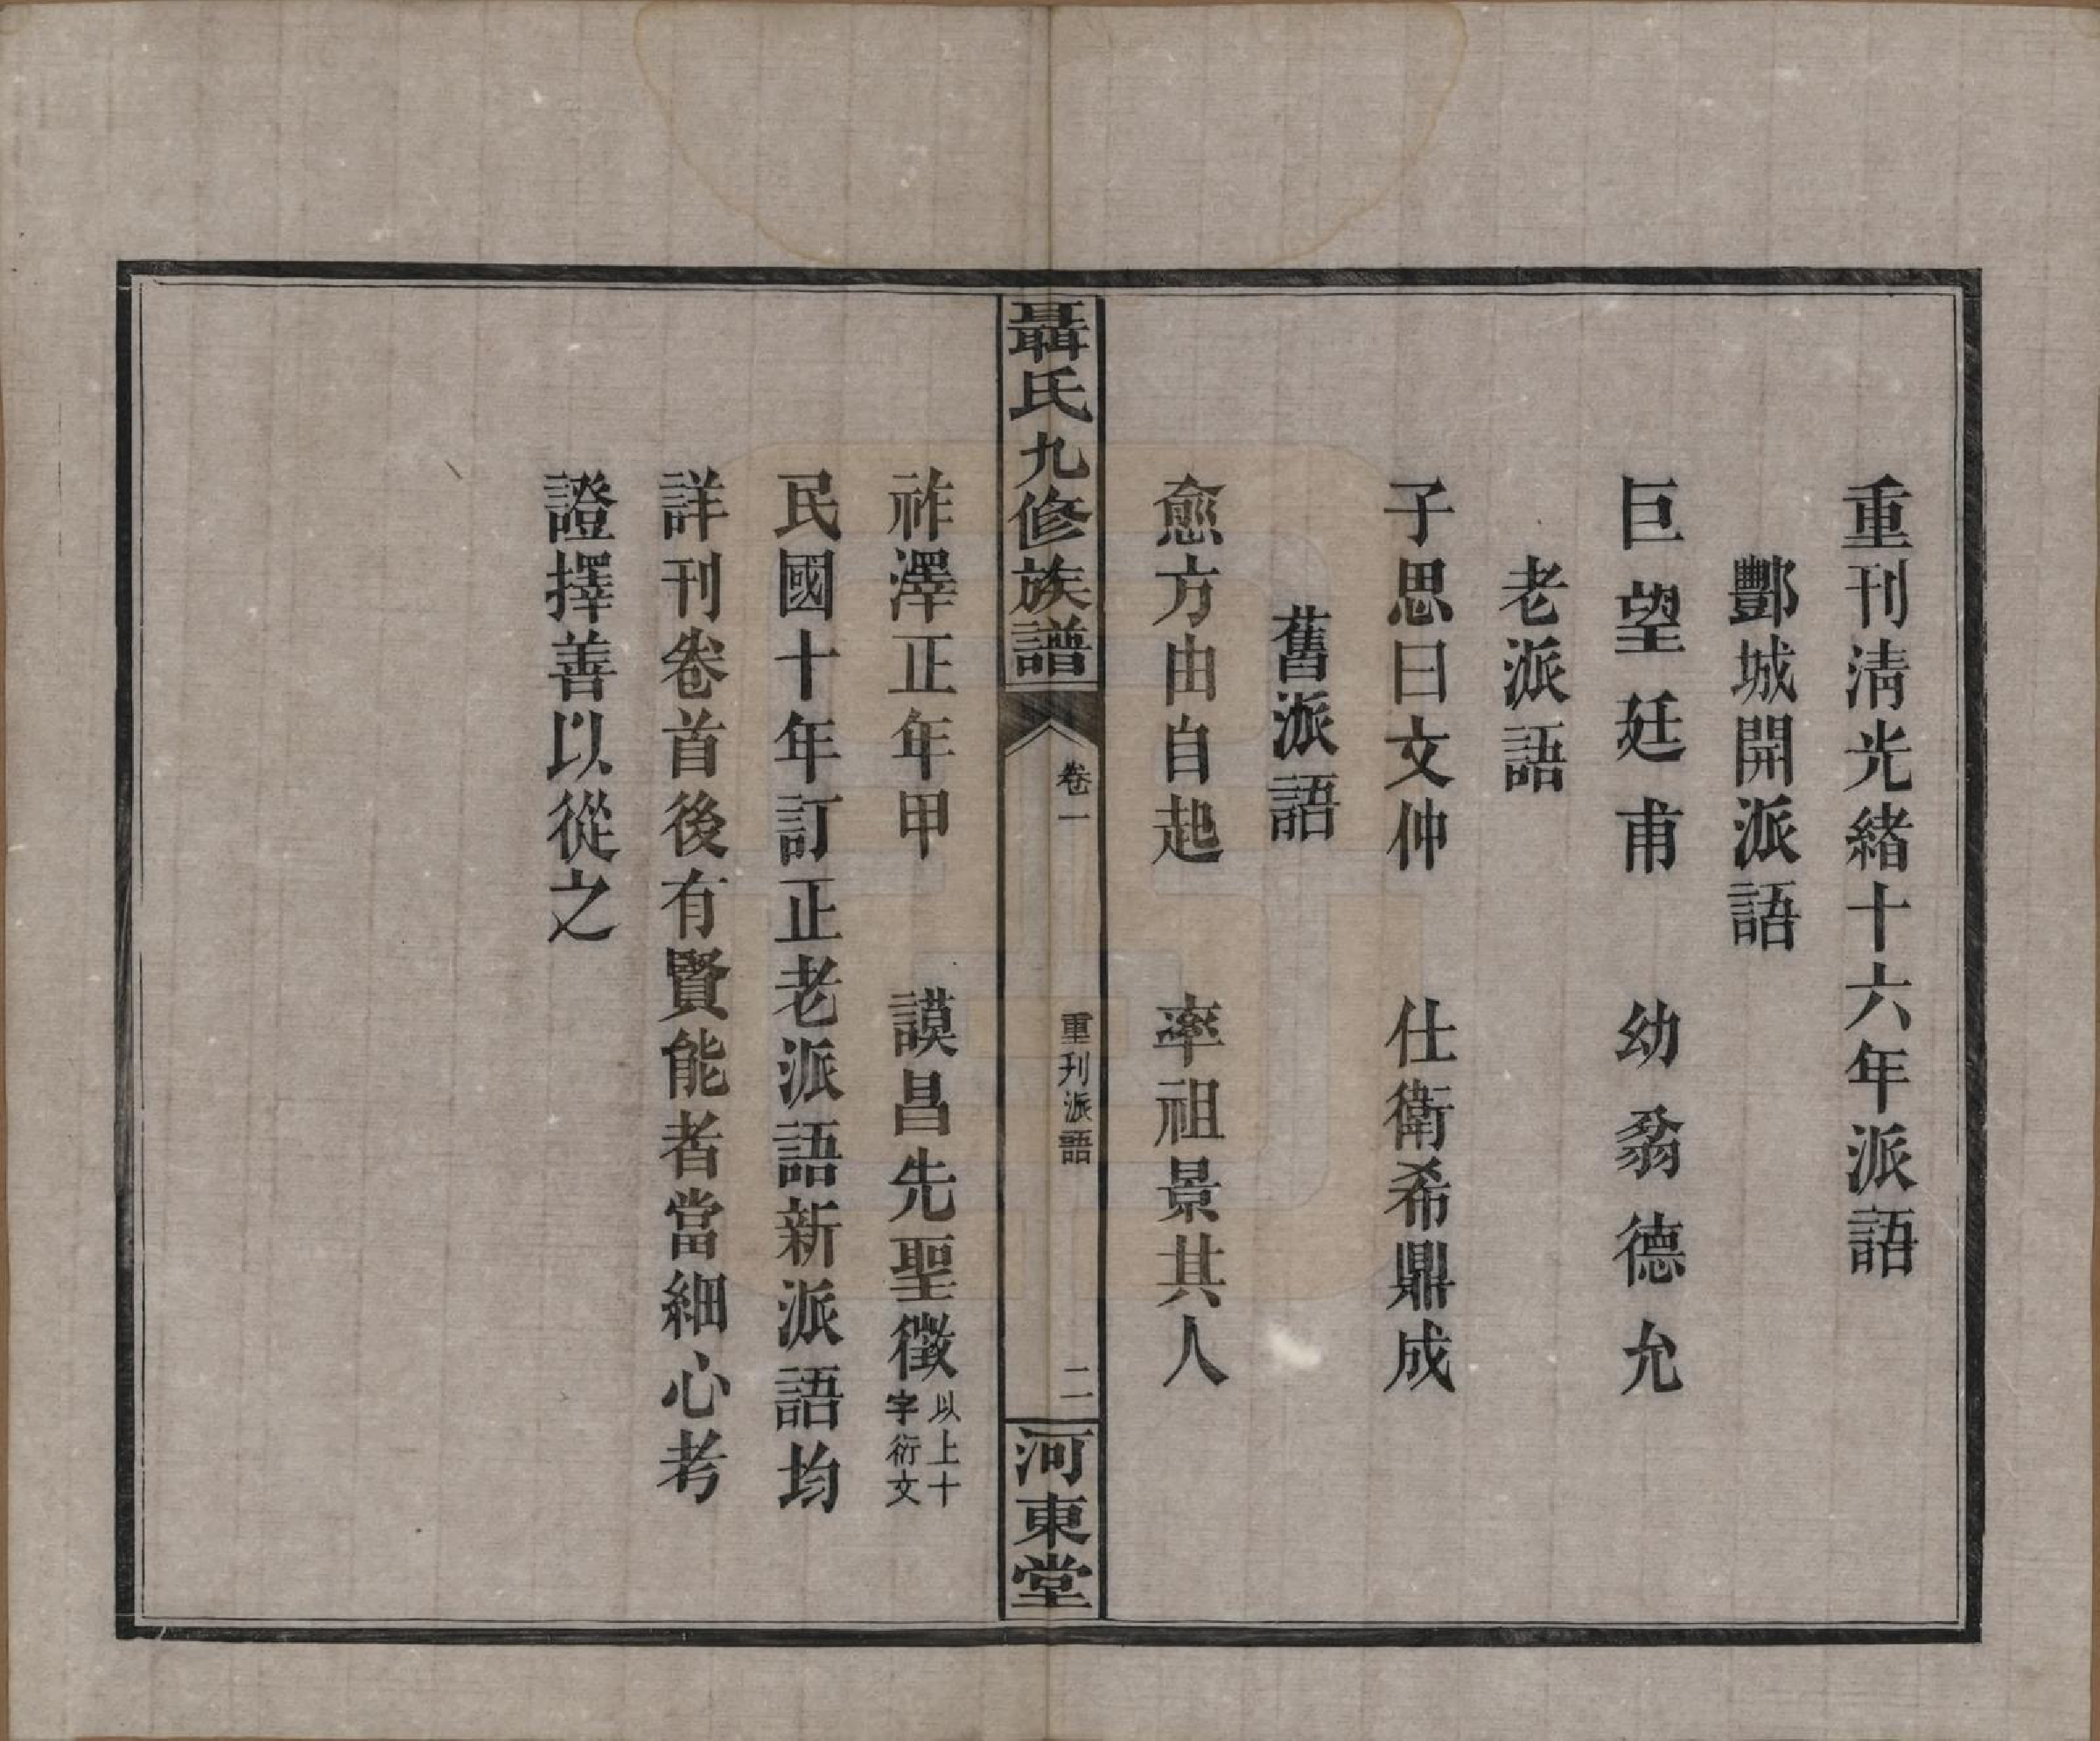 重刊清光緒十六年派語
酆城開派語
巨望廷甫　幼翁德允
老派語
子思曰文仲　仕衛希鼎成
舊派語
愈方由自起　率祖景其人
聶氏九修族譜　卷一　重刊派語　二　河東堂
祚澤正年甲　謨昌先聖徵以上十字衍文
民國十年訂正老派語新派語均
詳刊卷首後有賢能者當細心考
證擇善以從之